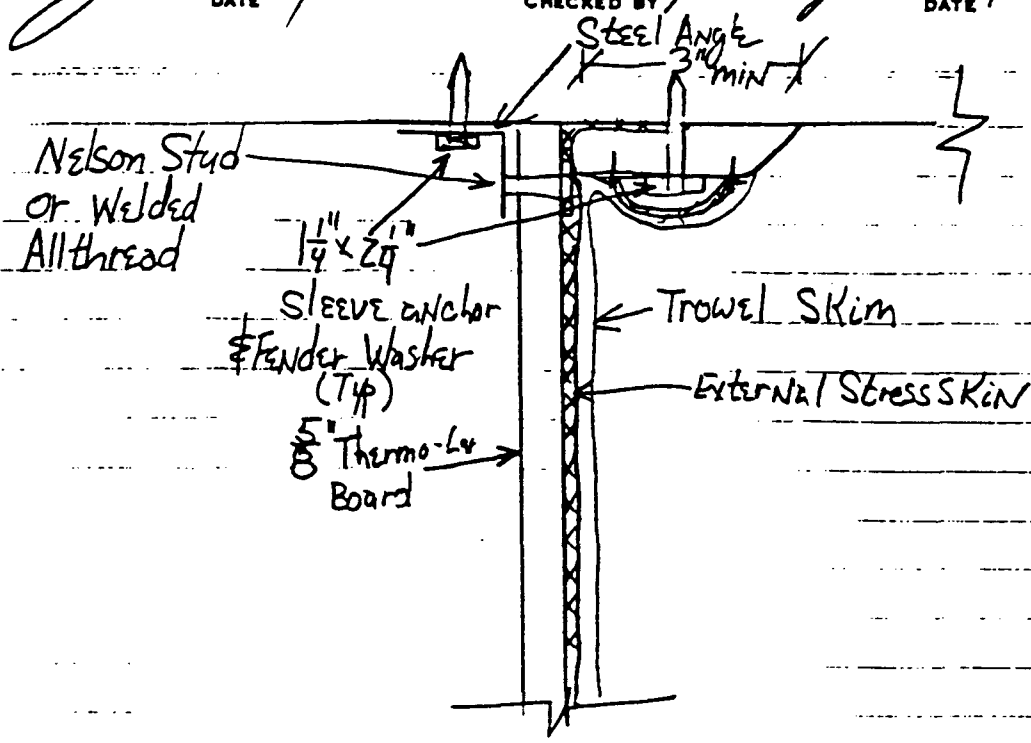 DATE
CHECKED BY
DATE
Steel Angle
3" min
Nelson Stud
or Welded
Allthread
1 1/4" x 2 1/4"
Sleeve anchor
& Fender Washer
(Typ)
5/8" Thermo-Lag
Board
Trowel Skim
External Stress Skin